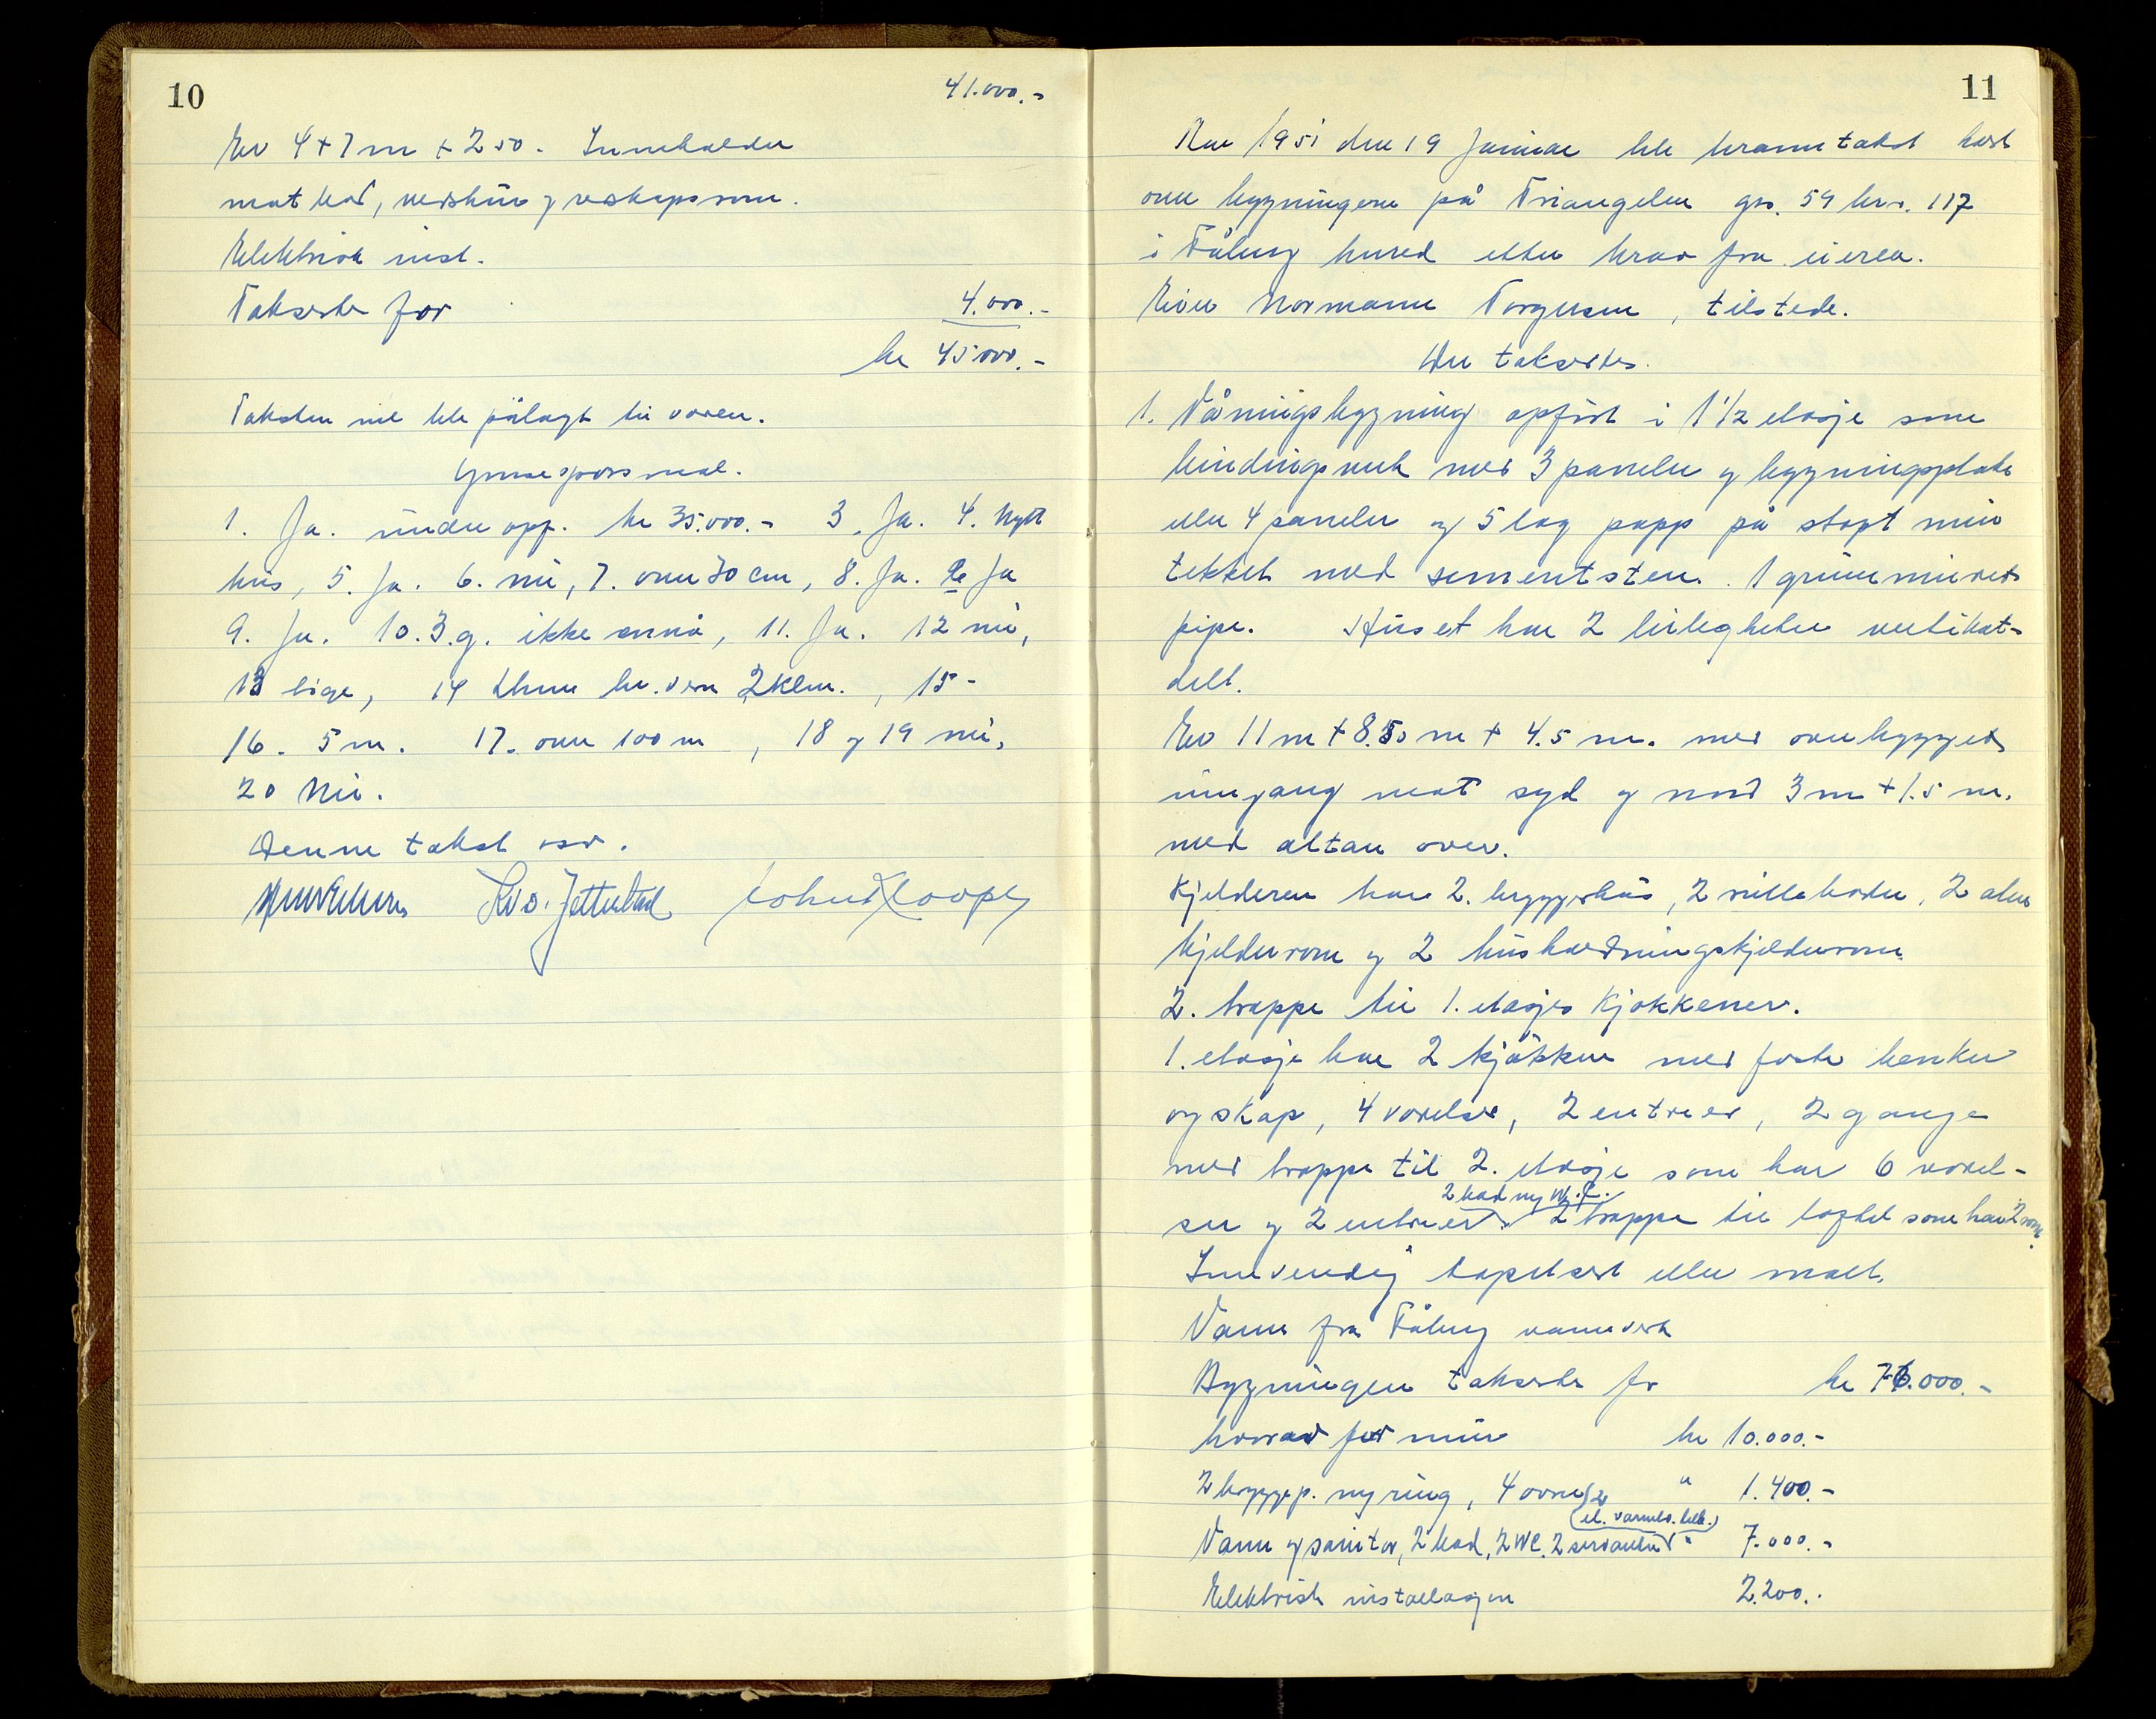 10
41.000.-
Er 4 + 7 m + 2 50. Inneholder
mat bod, vedskur og redskapsrom.
Elektrisk inst.
Takseres for 4.000.-
kr 45000.-
Taksten vil ble pålagt bi varen.
Grunnspørsmål.
1. Ja. under opp. kr 35.000.- 3. Ja. 4. Nytt
hus, 5. Ja. 6. nei, 7. over 70 cm, 8. Ja. Ja
9. Ja. 10. 3. g. ikke ennå, 11. Ja. 12 nei,
13 lige, 14 2 klm., 15 -
16. 5 m. 17. over 100 m, 18 og 19 nei,
20 Nei.
Denne takst osv.
11
Aar 1951 den 19 Januar ble branntakst holdt
over bygningene på Triangelen gnr. 59 bnr. 117
i Tåbuog herred etter krav fra eieren.
Eier Normann Torgersen, tilstede.
Der taksertes.
1. Våningsbygning oppført i 1 1/2 etasje som
bindingsverk med 3 paneler og bygningsplater
eller 4 paneler og 5 lag papp på støpt mur
tekket med sementsten. 1 grunnmuret
pipe. Huset har 2 leiligheter vertikal-
delt.
Er 11 m + 8.50 m + 4.5 m. med overbygget
inngang mot syd og nord 3 m + 1.5 m.
med altan over.
Kjelderen har 2. bryggerhus, 2 rulleboder, 2 alm
kjelderrom og 2 husholdningskjelderrom.
2. trappe til 1. etasjes Kjøkkener.
1. etasje har 2 kjøkken med faste benker
og skap, 4 værelser, 2 entreer, 2 gange
med trappe til 2. etasje som har 6 værel-
2 bad og W.C.
ser og 2 entreer. 2 trappe til loftet som har 2 rom.
Innvendig tapetsert eller malt.
Vann fra Tåbuog vannverk
Bygningen takseres for kr 76.000.-
hvorav for mur kr 10.000.-
2 bryggep. og ring, 4 ovner, 2 " 1.400.-
(el. varmtv. beh.)
Vann og sanitær, 2 bad, 2 WC. 2 servanter " 7.000.-
Elektrisk installasjon 2.200.-